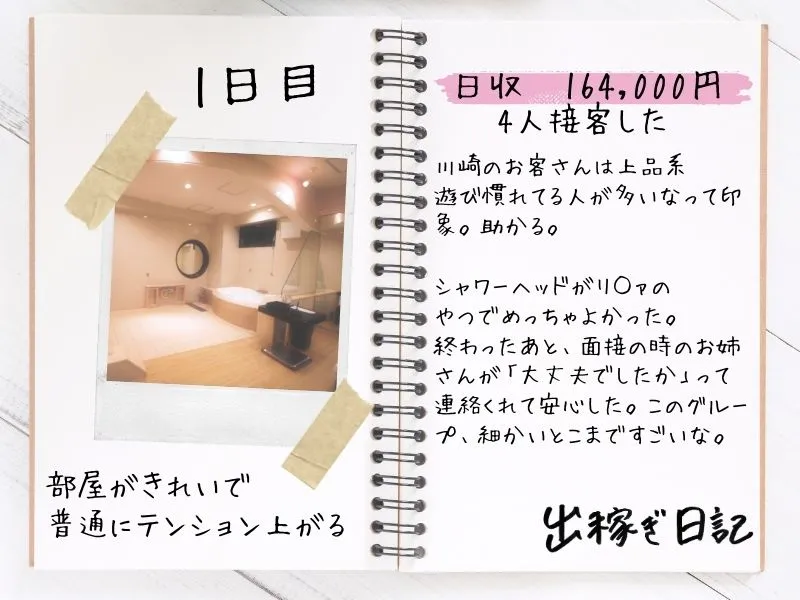 1日目
部屋がきれいで
普通にテンション上がる
日収 164,000円
4人接客した
川崎のお客さんは上品系
遊び慣れてる人が多いなって印
象。助かる。
シャワーヘッドがリ〇ァの
やつでめっちゃよかった。
終わったあと、面接の時のお姉
さんが「大丈夫でしたか」って
連絡くれて安心した。このグルー
プ、細かいとこまですごいな。
出稼ぎ日記